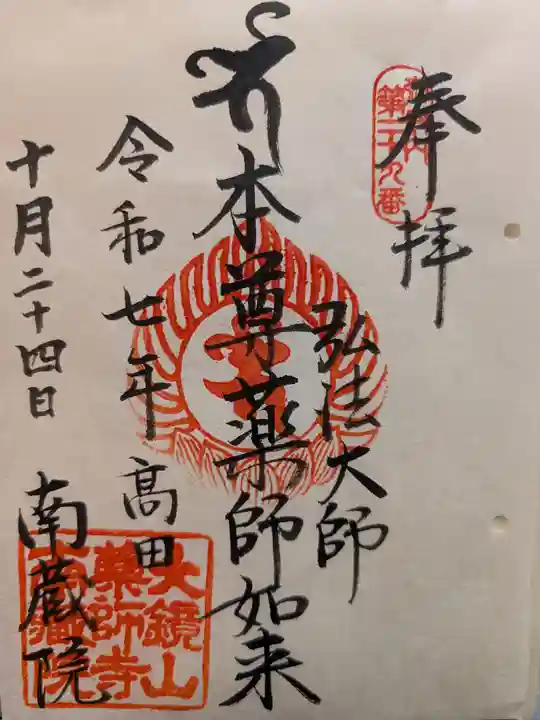 奉拝
第二十九番
弘法大師
本尊薬師如来
令和七年
高田
十月二十四日
南蔵院
大鏡山
薬師寺
南蔵院